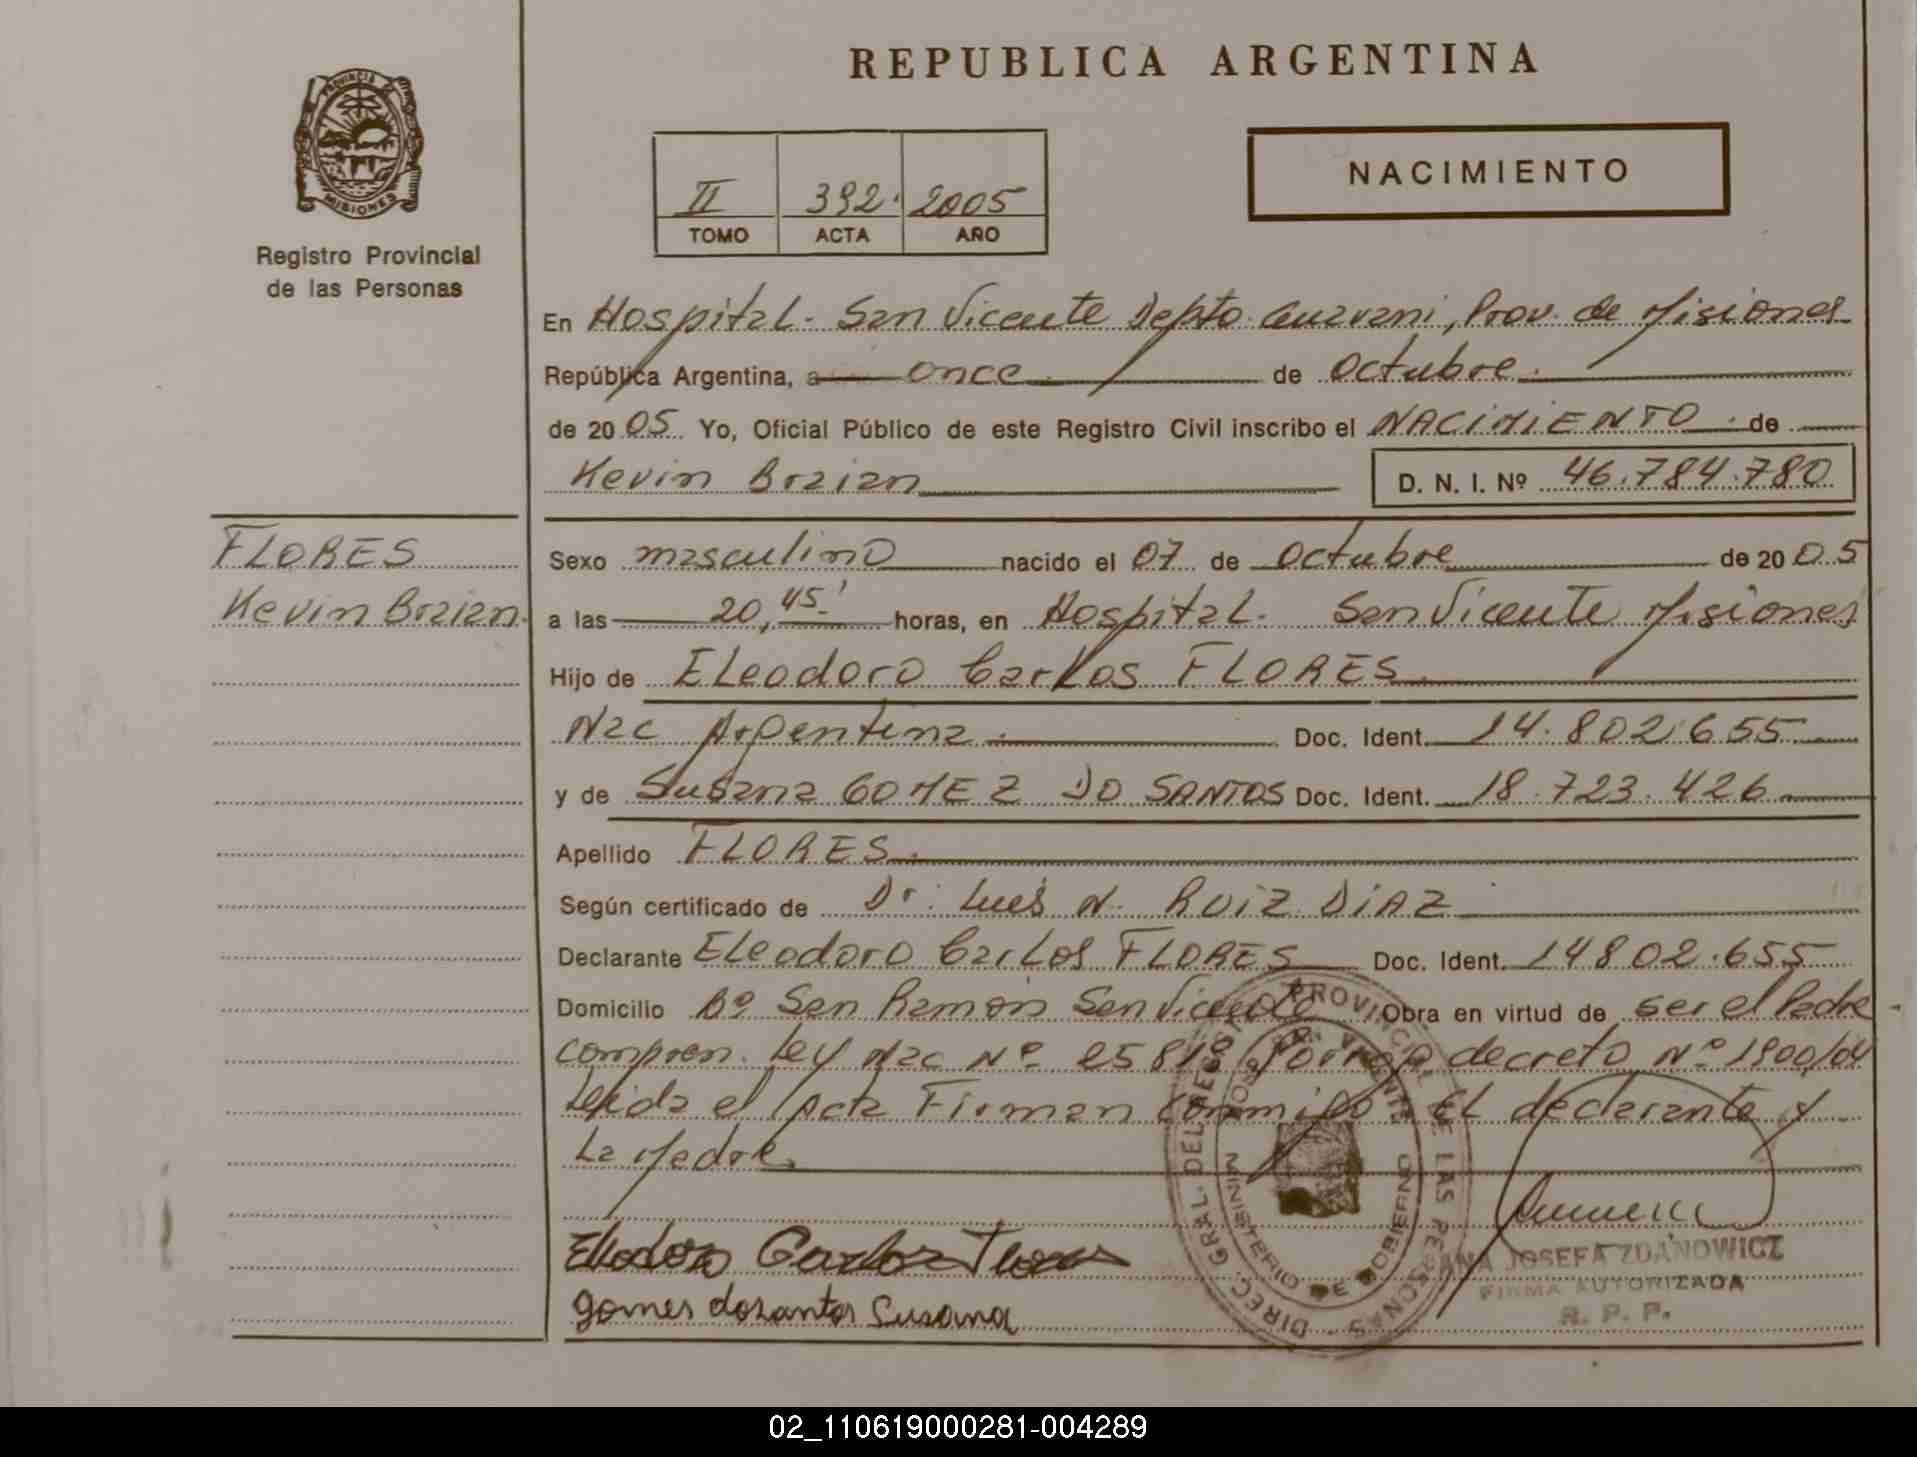 REPUBLICA ARGENTINA
PROVINCIA DE
MISIONES
Registro Provincial
de las Personas
II 392. 2005
TOMO ACTA AÑO
NACIMIENTO
En Hospital. San Vicente Depto. Guarani, Prov. de Misiones
República Argentina, a once. de Octubre.
de 2005. Yo, Oficial Público de este Registro Civil inscribo el NACIMIENTO. de
Kevin Braian
D. N. I. Nº 46.784.780
FLORES
Kevin Braian.
Sexo masculino nacido el 07 de Octubre de 2005
a las 20,45' horas, en Hospital. San Vicente Misiones
Hijo de Eleodoro Carlos FLORES
Nac Argentina. Doc. Ident. 14.802.655
y de Susana GOMEZ DO SANTOS Doc. Ident. 18.723.426
Apellido FLORES.
Según certificado de Dr. Luis N. RUIZ DIAZ
Declarante Eleodoro Carlos FLORES Doc. Ident. 14802.655
Domicilio Bº San Ramon San Vicente Obra en virtud de ser el Padre
compren. Ley Nac Nº 25819 decreto Nº 1900/04
Leida el Acta Firman conmigo El declarante y
La Madre.
Eleodoro Carlos Flores
gomes dosantos Susana
DIREC. GRAL. DEL REGISTRO PROVINCIAL DE LAS PERSONAS
MINISTERIO DE GOBIERNO
ANA JOSEFA ZDANOWICZ
FIRMA AUTORIZADA
R. P. P.
02_110619000281-004289